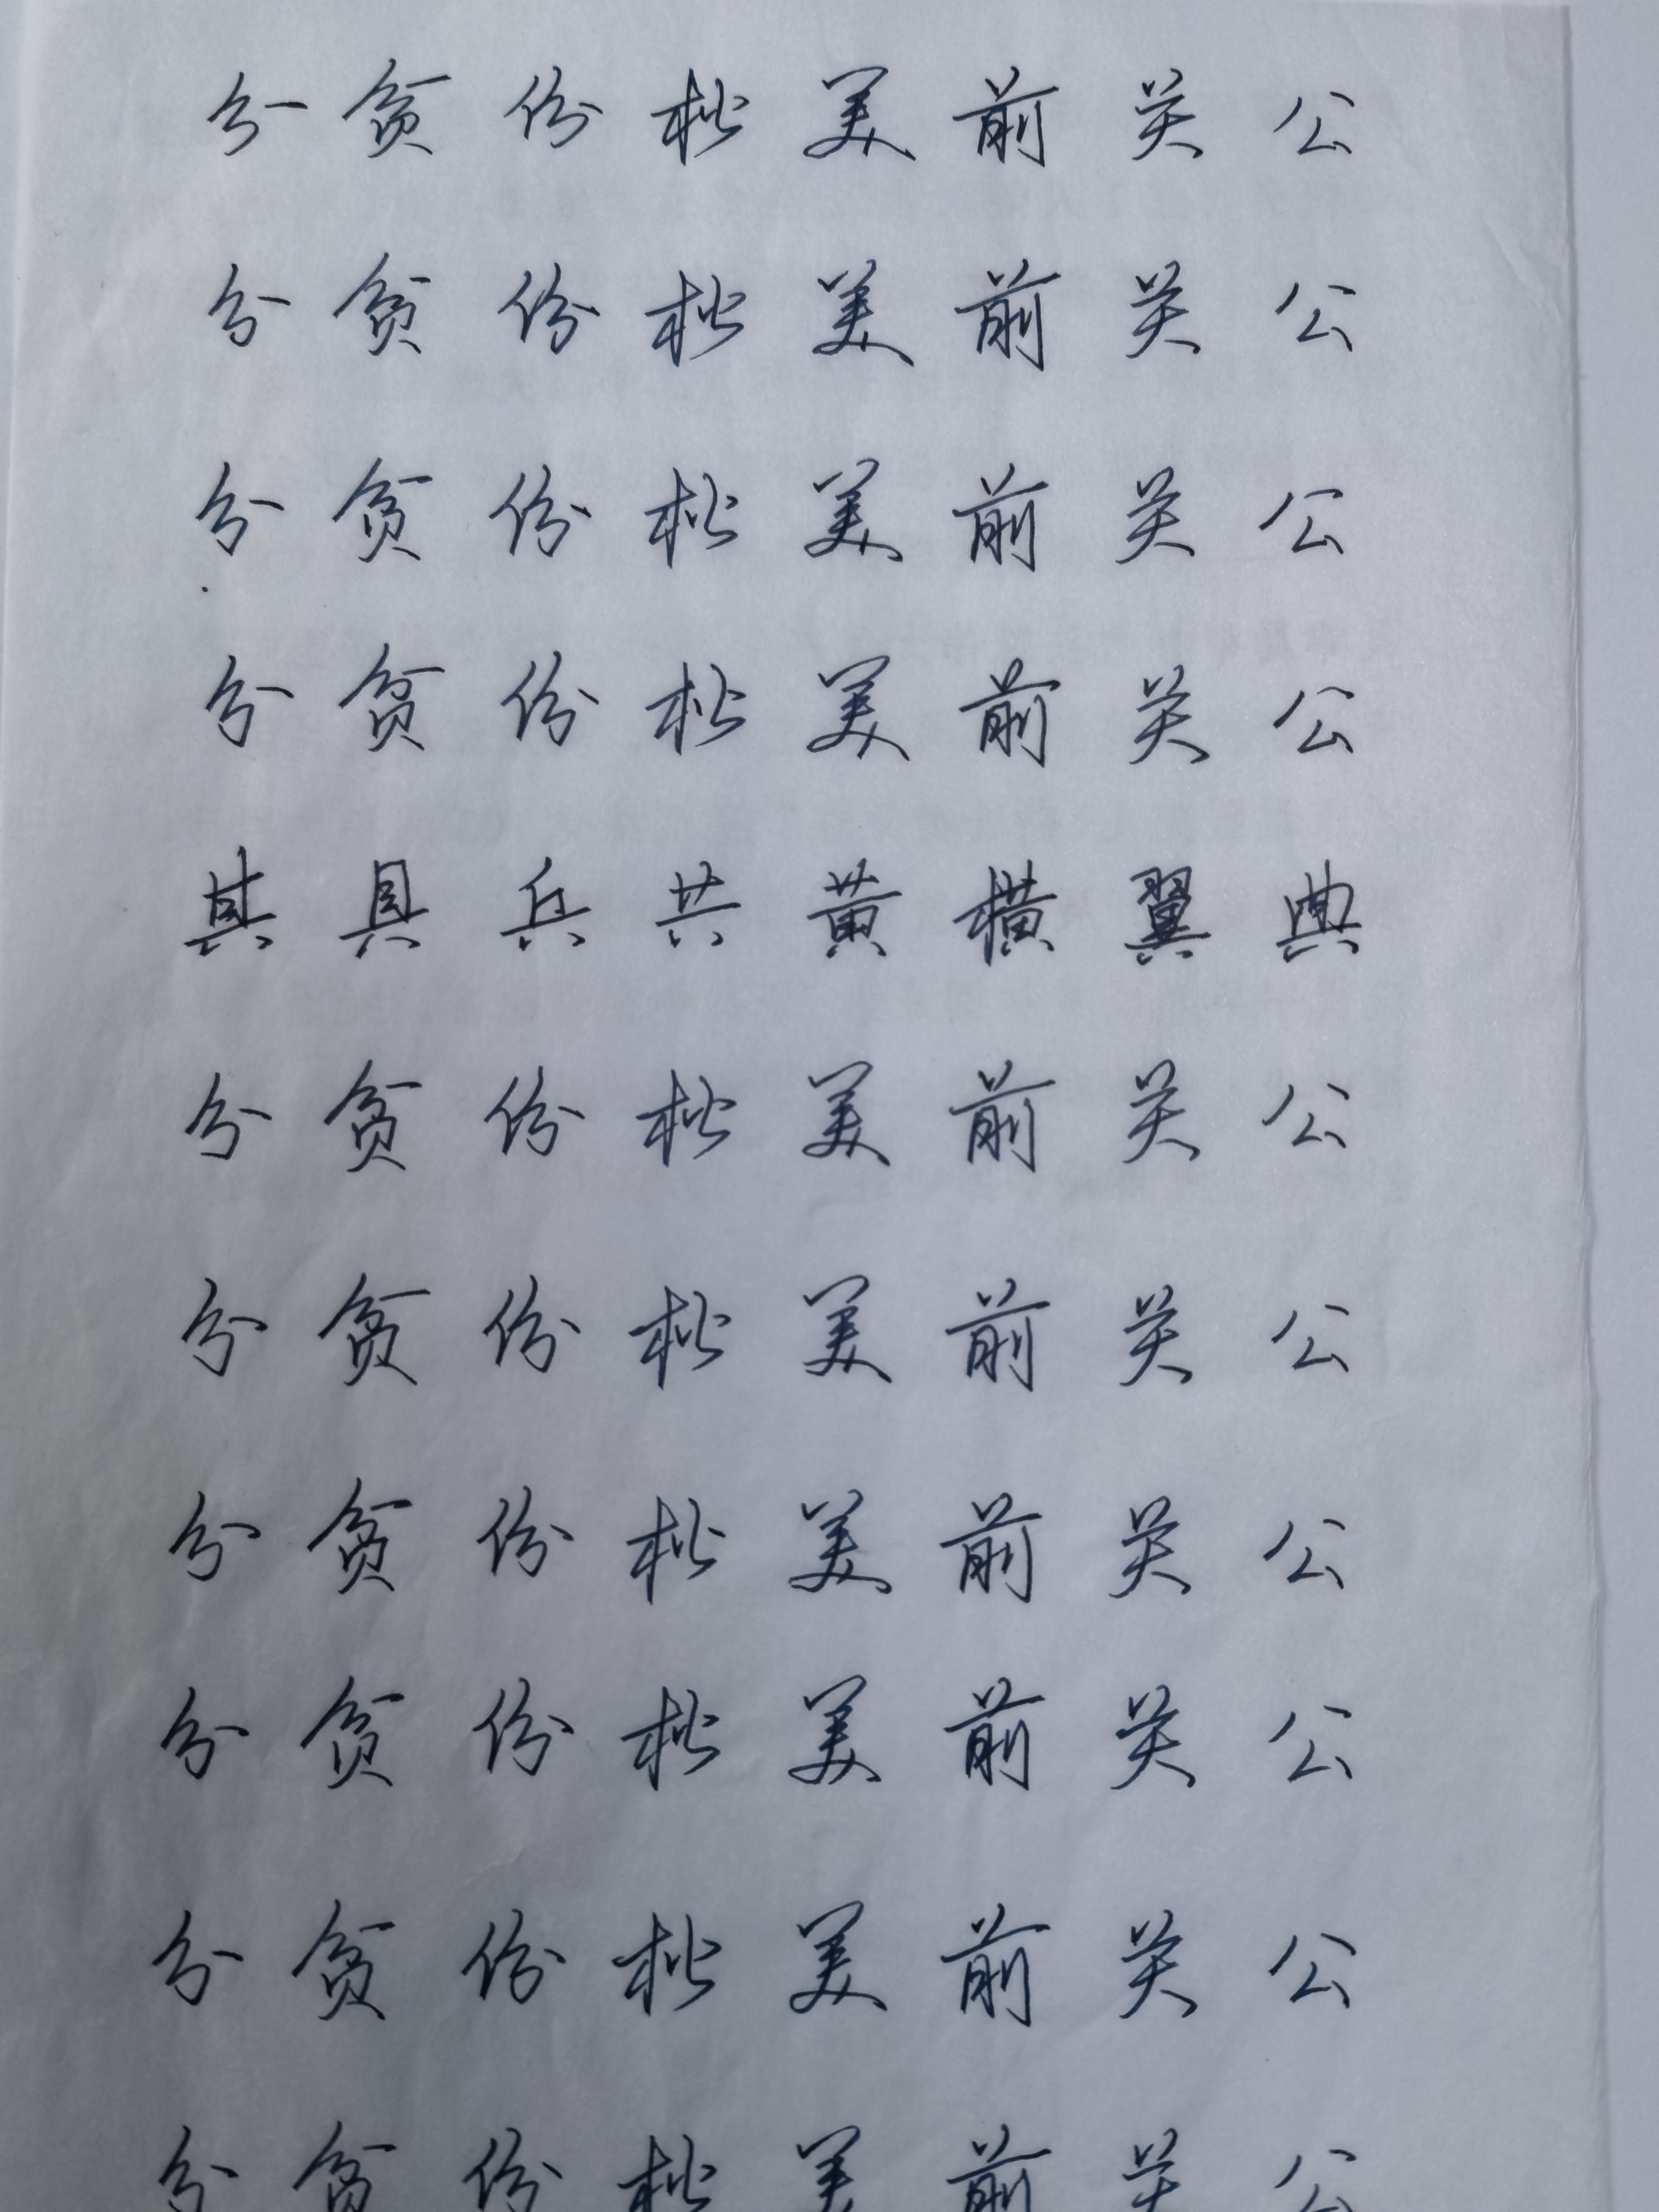 分 贫 份 松 美 前 关 公
分 贫 份 松 美 前 关 公
分 贫 份 松 美 前 关 公
分 贫 份 松 美 前 关 公
其 具 兵 共 黄 横 翼 典
分 贫 份 松 美 前 关 公
分 贫 份 松 美 前 关 公
分 贫 份 松 美 前 关 公
分 贫 份 松 美 前 关 公
分 贫 份 松 美 前 关 公
分 贫 份 松 美 前 关 公